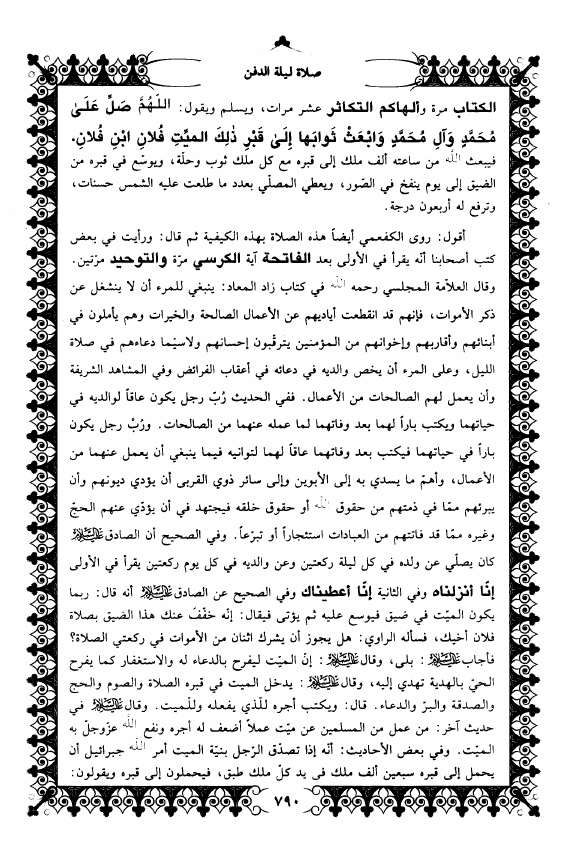 صلاة ليلة الدفن
الكتاب مرة وألهاكم التكاثر عشر مرات، ويسلم ويقول: اللّهُمَّ صَلِّ عَلَىٰ
مُحَمَّدٍ وَآلِ مُحَمَّدٍ وَابْعَثْ ثَوابَها إِلىٰ قَبْرِ ذٰلِكَ المَيِّتِ فُلانِ ابْنِ فُلانٍ.
فيبعث الله من ساعته ألف ملك إلى قبره مع كل ملك ثوب وحلّة، ويوسّع في قبره من
الضيق إلى يوم ينفخ في الصّور، ويعطي المصلّي بعدد ما طلعت عليه الشمس حسنات،
وترفع له أربعون درجة.
أقول: روى الكفعمي أيضاً هذه الصلاة بهذه الكيفية ثم قال: ورأيت في بعض
كتب أصحابنا أنّه يقرأ في الأولى بعد الفاتحة آية الكرسي مرّة والتوحيد مرّتين.
وقال العلاّمة المجلسي رحمه الله في كتاب زاد المعاد: ينبغي للمرء أن لا ينشغل عن
ذكر الأموات، فإنهم قد انقطعت أياديهم عن الأعمال الصالحة والخيرات وهم يأملون في
أبنائهم وأقاربهم وإخوانهم من المؤمنين يترقّبون إحسانهم ولاسيّما دعاءهم في صلاة
الليل، وعلى المرء أن يخص والديه في دعائه في أعقاب الفرائض وفي المشاهد الشريفة
وأن يعمل لهم الصالحات من الأعمال. ففي الحديث رُبّ رجل يكون عاقاً لوالديه في
حياتهما ويكتب باراً لهما بعد وفاتهما لما عمله عنهما من الصالحات. ورُبّ رجل يكون
باراً في حياتهما فيكتب بعد وفاتهما عاقاً لهما لتوانيه فيما ينبغي أن يعمل عنهما من
الأعمال، وأهمّ ما يسدي به إلى الأبوين وإلى سائر ذوي القربى أن يؤدي ديونهم وأن
يبرئهم ممّا في ذمتهم من حقوق الله أو حقوق خلقه فيجتهد في أن يؤدّي عنهم الحجّ
وغيره ممّا قد فاتتهم من العبادات استئجاراً أو تبرّعاً. وفي الصحيح أن الصادق عليه السلام
كان يصلّي عن ولده في كل ليلة ركعتين وعن والديه في كل يوم ركعتين يقرأ في الأولى
إنّا أنزلناه وفي الثانية إنّا أعطيناك وفي الصحيح عن الصادق عليه السلام أنه قال: ربما
يكون الميّت في ضيق فيوسع عليه ثم يؤتى فيقال: إنّه خفّفَ عنك هذا الضيق بصلاة
فلان أخيك، فسأله الراوي: هل يجوز أن يشرك اثنان من الأموات في ركعتي الصلاة؟
فأجاب عليه السلام: بلى، وقال عليه السلام: إنّ الميّت ليفرح بالدعاء له والاستغفار كما يفرح
الحيّ بالهدية تهدي إليه، وقال عليه السلام: يدخل الميت في قبره الصلاة والصوم والحج
والصدقة والبرّ والدعاء. قال: ويكتب أجره للّذي يفعله وللّميت. وقال عليه السلام في
حديث آخر: من عمل من المسلمين عن ميّت عملاً أضعف له أجره ونفع الله عزوجلّ به
الميّت. وفي بعض الأحاديث: أنّه إذا تصدّق الرّجل بنيّة الميت أمر الله جبرائيل أن
يحمل إلى قبره سبعين ألف ملك في يد كلّ ملك طبق، فيحملون إلى قبره ويقولون:
٧٩٠